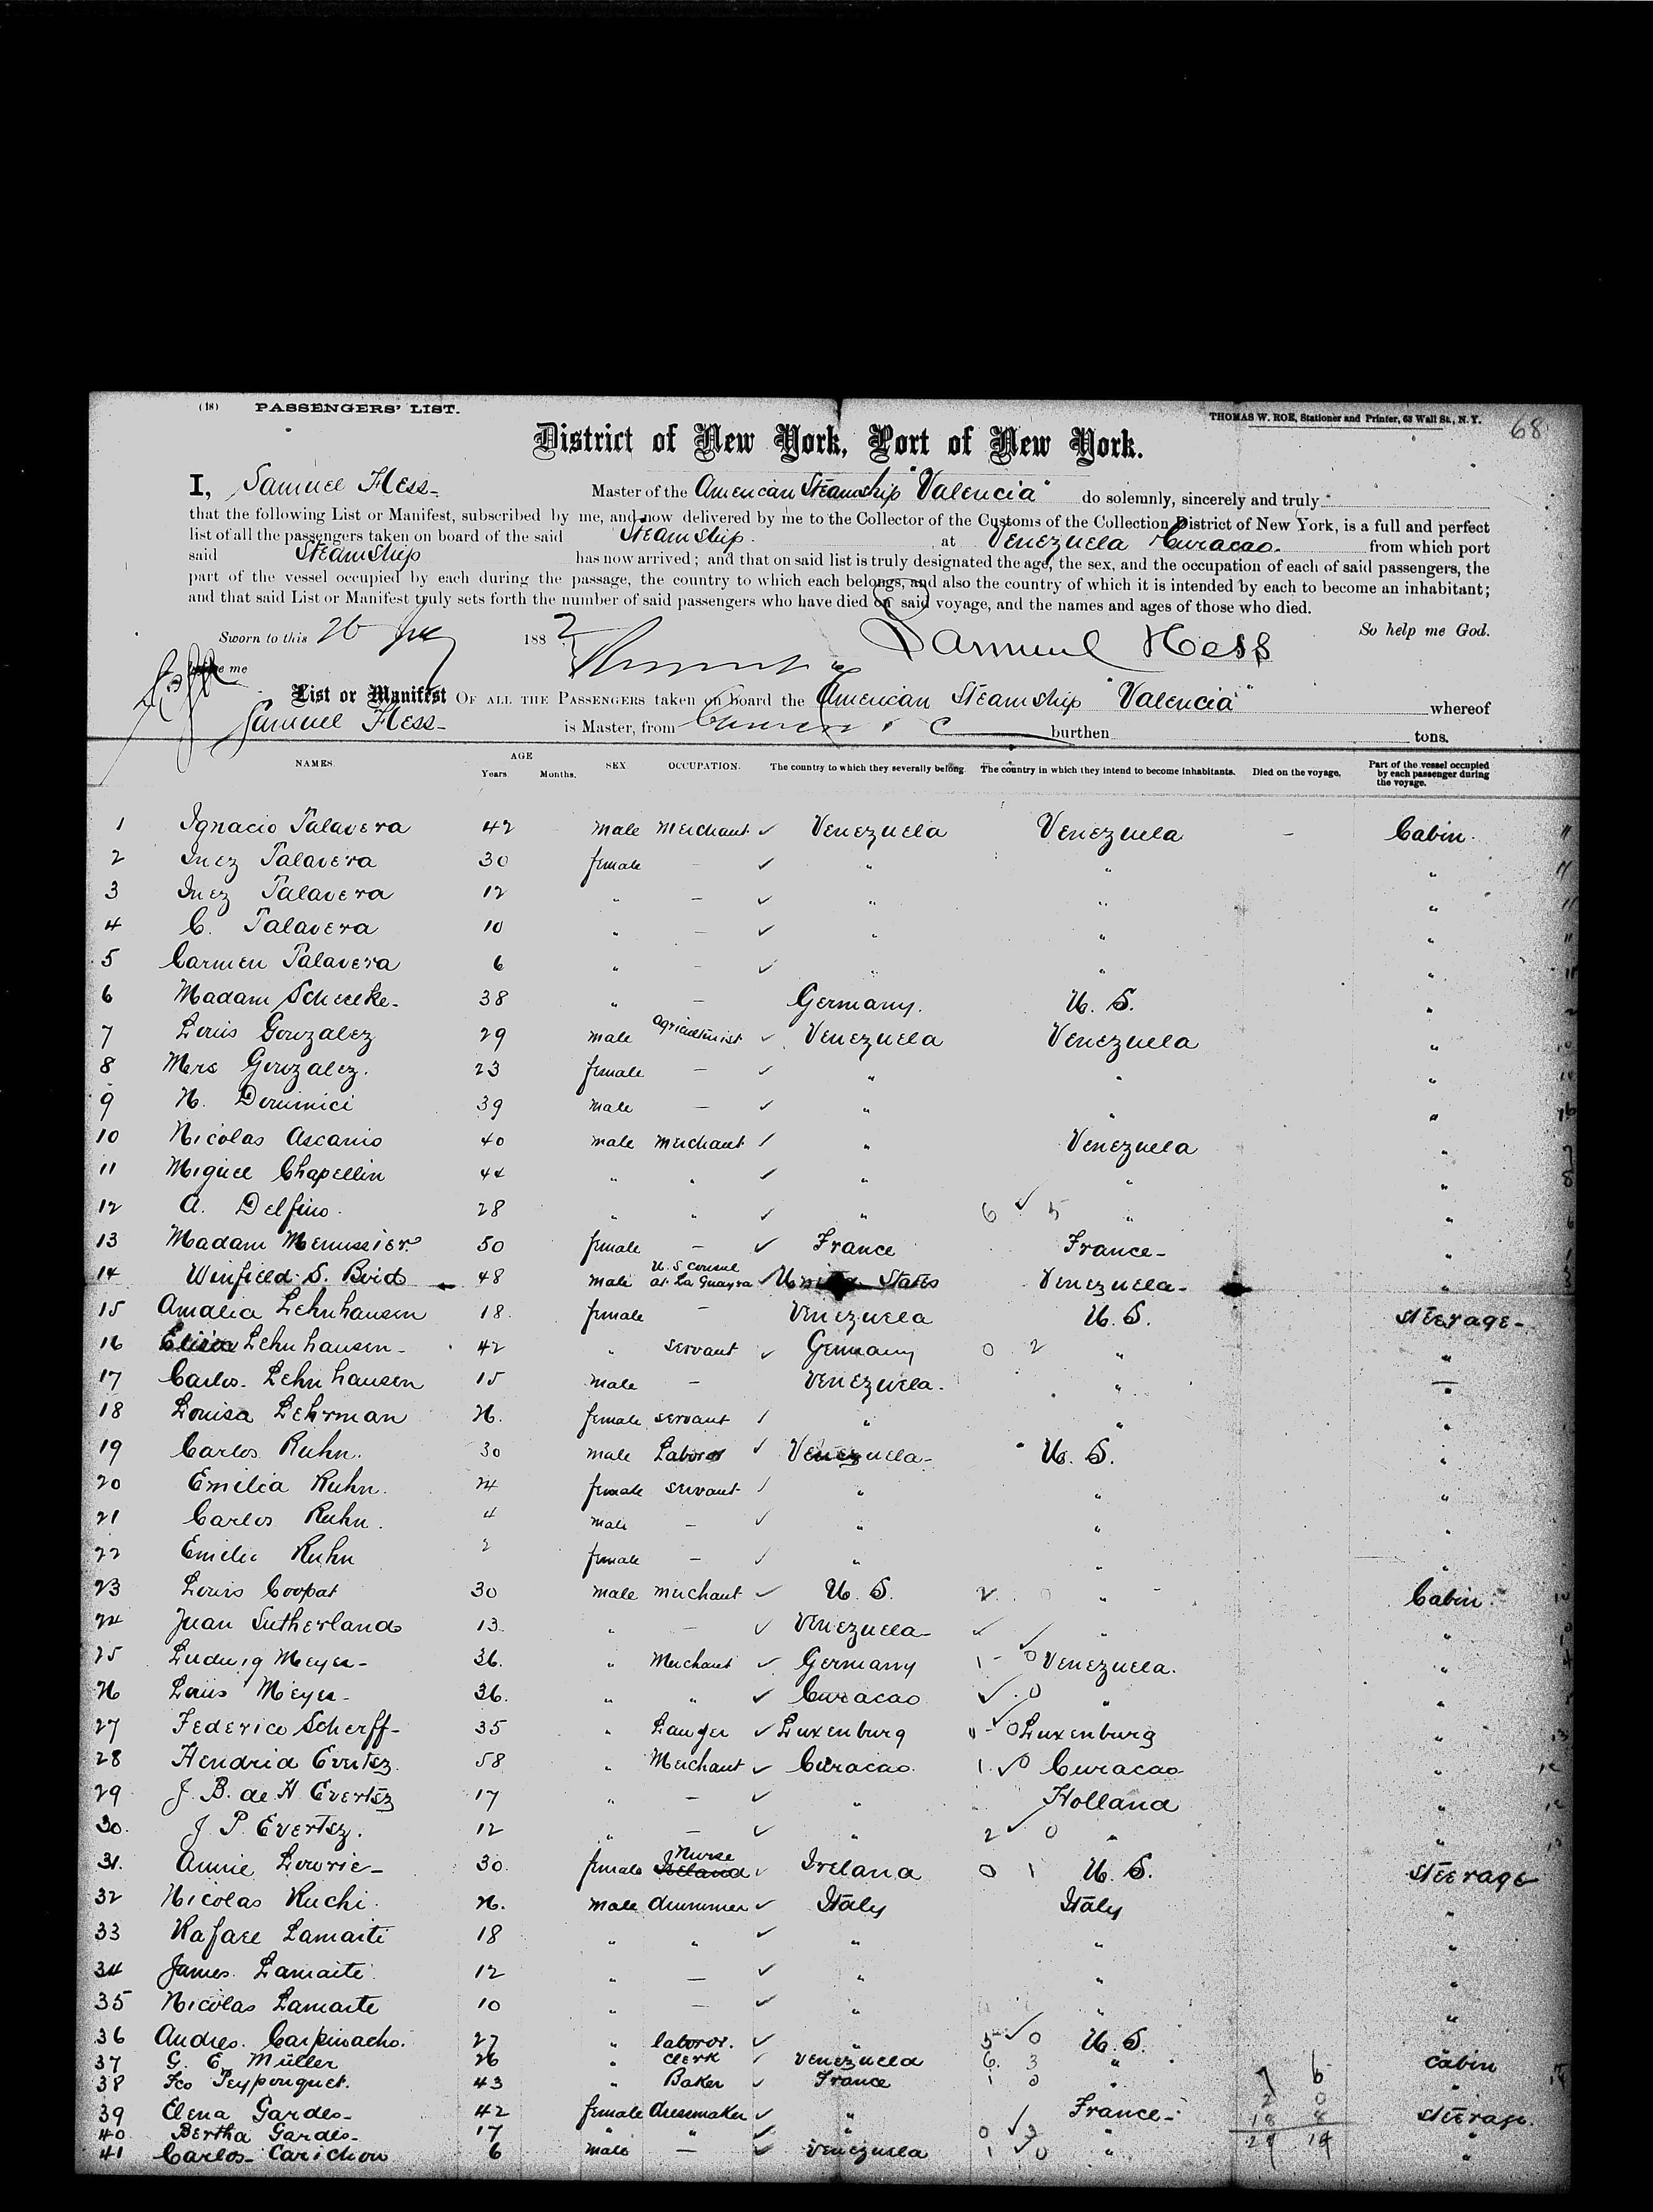 (18) PASSENGERS' LIST.
THOMAS W. ROE, Stationer and Printer, 63 Wall St., N. Y.
68
District of New York, Port of New York.
I, Samuel Hess Master of the American Steamship "Valencia" do solemnly, sincerely and truly
that the following List or Manifest, subscribed by me, and now delivered by me to the Collector of the Customs of the Collection District of New York, is a full and perfect
list of all the passengers taken on board of the said Steamship at Venezuela Curacao. from which port
said Steamship has now arrived; and that on said list is truly designated the age, the sex, and the occupation of each of said passengers, the
part of the vessel occupied by each during the passage, the country to which each belongs, and also the country of which it is intended by each to become an inhabitant;
and that said List or Manifest truly sets forth the number of said passengers who have died on said voyage, and the names and ages of those who died.
Sworn to this 26 188 So help me God.
Samuel Hess
before me
List or Manifest OF ALL THE PASSENGERS taken on board the American Steamship "Valencia" whereof
Samuel Hess is Master, from burthen tons.
NAMES. AGE Years. Months. SEX OCCUPATION. The country to which they severally belong. The country in which they intend to become inhabitants. Died on the voyage. Part of the vessel occupied by each passenger during the voyage.
1 Ignacio Talavera 42 male Merchant Venezuela Venezuela - Cabin
2 Inez Talavera 30 female - " " "
3 Inez Talavera 12 " - " " "
4 C. Talavera 10 " - " " "
5 Carmen Talavera 6 " - " " "
6 Madam Scheelke 38 " - Germany. U. S. "
7 Louis Gonzalez 29 male agriculturist Venezuela Venezuela "
8 Mrs Gonzalez. 23 female - " " "
9 N. Dominici 39 male - " " "
10 Nicolas Ascanio 40 male merchant " Venezuela "
11 Miguel Chapellin 44 " " " " "
12 A. Delfino. 28 " " " " "
13 Madam Menussier 50 female - France France "
14 Winfield S. Bird 48 male U. S Consul at La Guayra United States Venezuela "
15 Amalia Lehnhausen 18. female - Venezuela U. S. Steerage
16 Elisa Lehnhausen 42 " servant Germany " "
17 Carlos Lehnhausen 15 male - Venezuela. " "
18 Louisa Lehrman 26. female servant " " "
19 Carlos Kuhn. 30 male Labor Venezuela U. S. "
20 Emilia Kuhn. 24 female servant " " "
21 Carlos Kuhn. 4 male - " " "
22 Emilie Kuhn 2 female - " " "
23 Louis Coopat 30 male merchant U. S. " Cabin
24 Juan Sutherland 13. " - Venezuela " "
25 Ludwig Meyer 36. " Merchant Germany Venezuela. "
26 Louis Meyer 36. " " Curacao " "
27 Federico Scherff 35 " Luxenburg Luxenburg "
28 Hendrid Evertsz 58 " Merchant Curacao. Curacao "
29 J. B. de H. Evertsz 17 " - " Holland "
30. J. P. Evertsz. 12 " - " " "
31. Annie Lowrie 30. female Ireland Nurse Ireland U. S. Steerage
32 Nicolas Ruchi 26. male drummer Italy Italy "
33 Rafael Lamaite 18 " " " " "
34 James Lamaite 12 " - " " "
35 Nicolas Lamaite 10 " - " " "
36 Andres. Carpinacho. 27 " labor. " U. S. "
37 G. E. Müller 26 " Clerk Venezuela " Cabin
38 Fco Peypouquet. 43 " Baker France " "
39 Elena Gardes 42 female dressmaker " France Steerage.
40 Bertha Gardes 17 " " " " "
41 Carlos Carichon 6 male - Venezuela " "